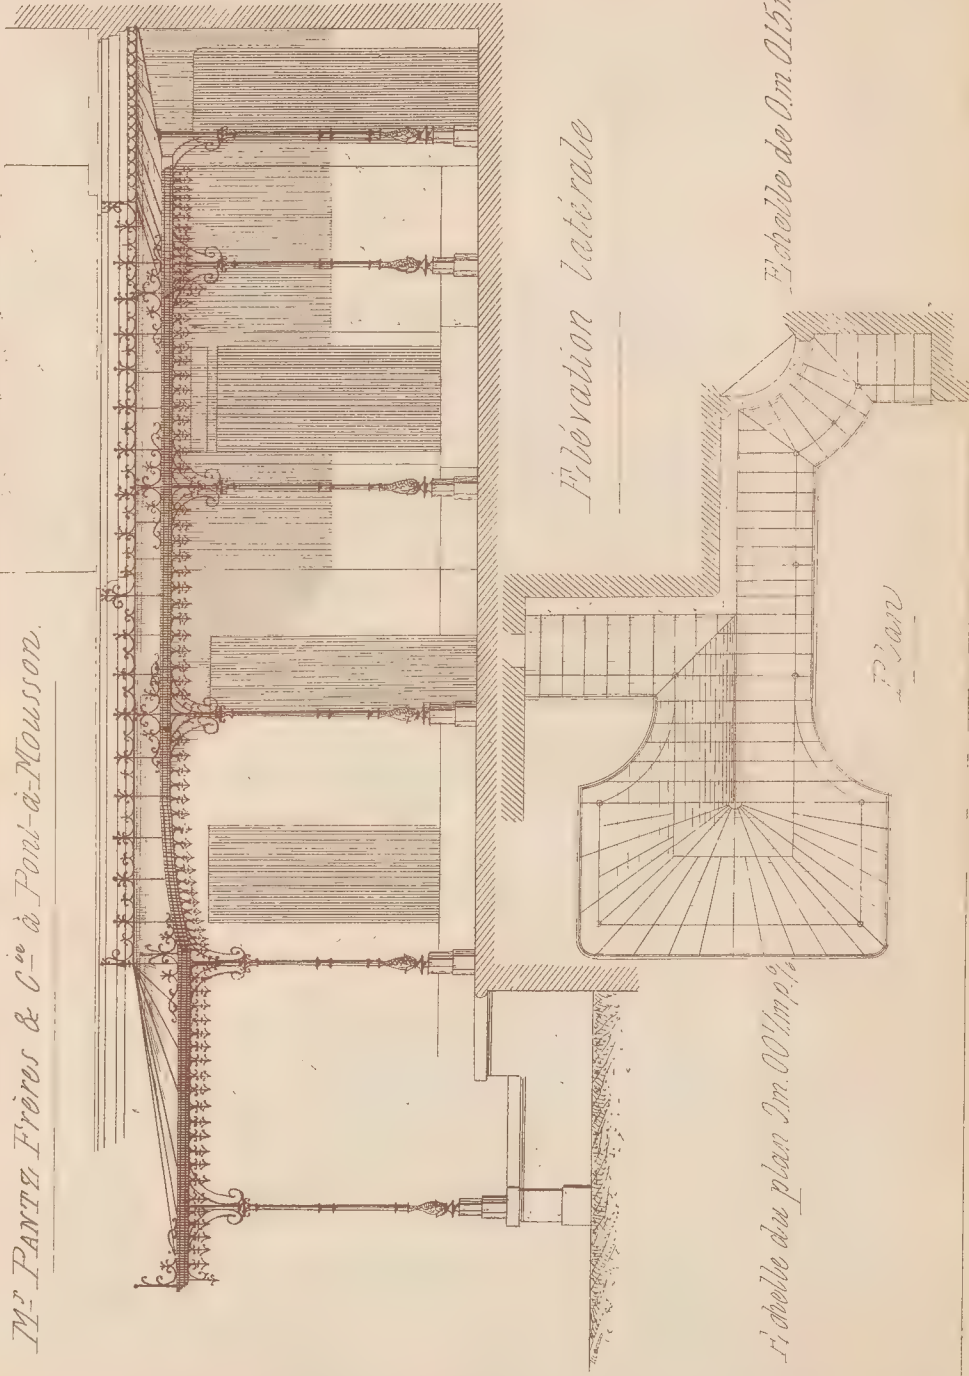 Mr PANTZ Frères & Cie à Pont-à-Mousson.
Elévation latérale
Echelle de 0.m.015
Plan
Echelle du plan 2m.00 p%